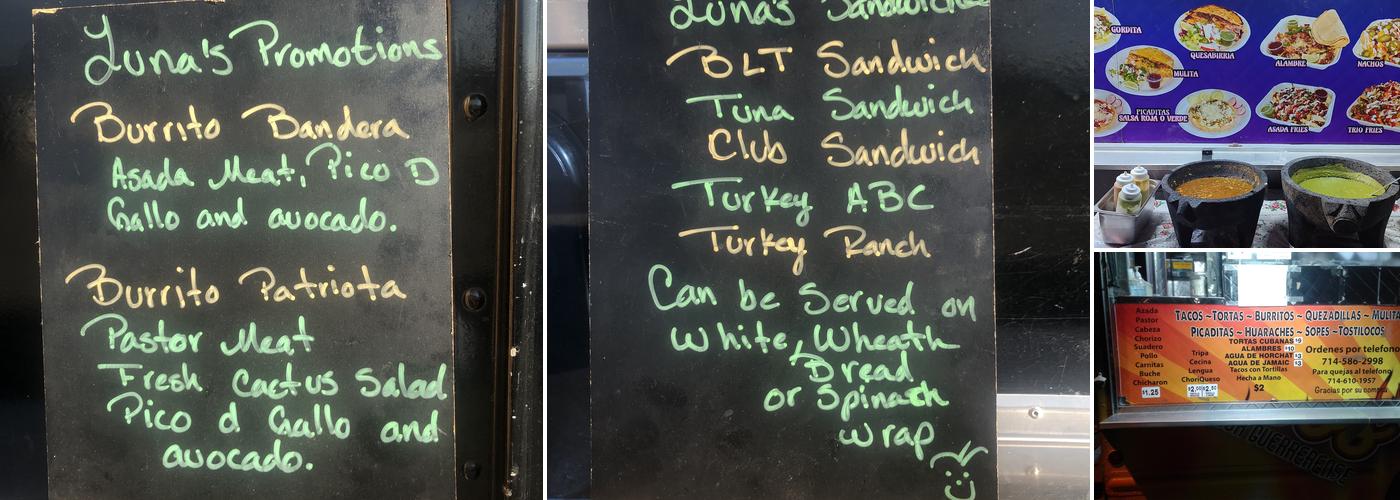 Luna's Promotions
Burrito Bandera
Asada Meat, Pico D
Gallo and avocado.
Burrito Patriota
Pastor Meat
Fresh Cactus Salad
Pico d Gallo and
avocado.
Luna's Sandwiches
BLT Sandwich
Tuna Sandwich
Club Sandwich
Turkey ABC
Turkey Ranch
Can be Served on
White, Wheath
Bread
or Spinach
wrap
GORDITA
QUESABIRRIA
ALAMBRE
NACHOS
MULITA
PICADITAS
SALSA ROJA O VERDE
ASADA FRIES
TRIO FRIES
TACOS ~ TORTAS ~ BURRITOS ~ QUEZADILLAS ~ MULITA
PICADITAS ~ HUARACHES ~ SOPES ~ TOSTILOCOS
Azada
Pastor
Cabeza
Chorizo
Suadero
Pollo
Carnitas
Buche
Chicharon
$1.25
Tripa
Cecina
Lengua
ChoriQueso
$2.00 $2.50
TORTAS CUBANAS $9
ALAMBRES $10
AGUA DE HORCHAT $3
AGUA DE JAMAIC $3
Tacos con Tortillas
Hecha a Mano
$2
Ordenes por telefono
714-586-2998
Para quejas al telefono
714-610-1957
Gracias por su compra
GUERRERENSE